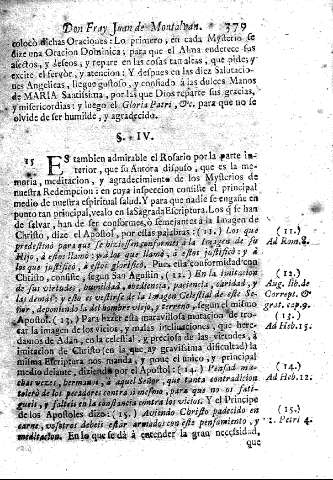 Don Fray Juan de Montalvan. 379
colocò dichas Oraciones: Lo primero, en cada Mysterio se
dize una Oracion Dominica; para que el Alma enderece sus
afectos, y deseos, y repare en las cosas tan altas, que pide; y
excite el fervor, y atencion: Y despues en las diez Salutacio-
nes Angelicas, llegue gostoso, y confiado à las dulces Manos
de MARIA Santissima, por las que Dios reparte sus gracias,
y misericordias: y luego el Gloria Patri, &c. para que no se
olvide de ser humilde, y agradecido.
§. IV.
15 Es tambien admirable el Rosario por la parte in-
terior, que su Autora dispuso, que es la me-
moria, meditacion, y agradecimiento de los Mysterios de
nuestra Redempcion: en cuya inspeccion consiste el principal
medio de nuestra espiritual salud. Y para que nadie se engañe en
punto tan principal, vealo en la Sagrada Escriptura. Los q̃ se han
de salvar, han de ser conformes, ò semejantes à la Imagen de
Christo, dize el Apostol, por estas palabras: (11.) Los que
predestinò para que se hiziessen conformes à la Imagen de su
Hijo, à estos llamò: y à los que llamò, à estos justificò: y à
los que justificò, à estos glorificò. Pues esta conformidad con
Christo, consiste, segun San Agustin, (12.) En la imitacion
de sus virtudes, humildad, obediencia, paciencia, caridad, y
las demàs: y esto es vestirse de la Imagen Celestial de este Se-
ñor, deponiendo la del hombre viejo, y terreno, segun el mismo
Apostol. (13.) Para hazer esta maravillosa mutacion de tro-
car la imagen de los vicios, y malas inclinaciones, que here-
damos de Adàn, en la celestial, y preciosa de las virtudes, à
imitacion de Christo (en la que ay gravissima dificultad) la
misma Escriptura nos manda, y pone el unico, y principal
medio delante, diziendo por el Apostol: (14.) Pensad mu-
chas vezes, hermanos, à aquel Señor, que tanta contradicion
tolerò de los pecadores contra sì mesmo, para que no os fati-
gueis, y falteis en la constancia contra los vicios. Y el Principe
de los Apostoles dize: (15.) Aviendo Christo padecido en
carne, vosotros debeis estàr armados con este pensamiento, y
meditacion. En lo que se dà à entender la gran necessidad,
que
(11.)
Ad Rom. 8.
(12.)
Aug. lib. de
Correpr. &
grat. cap. 9.
(13.)
Ad Heb. 15.
(14.)
Ad Heb. 12.
(15.)
1. Petri 4.